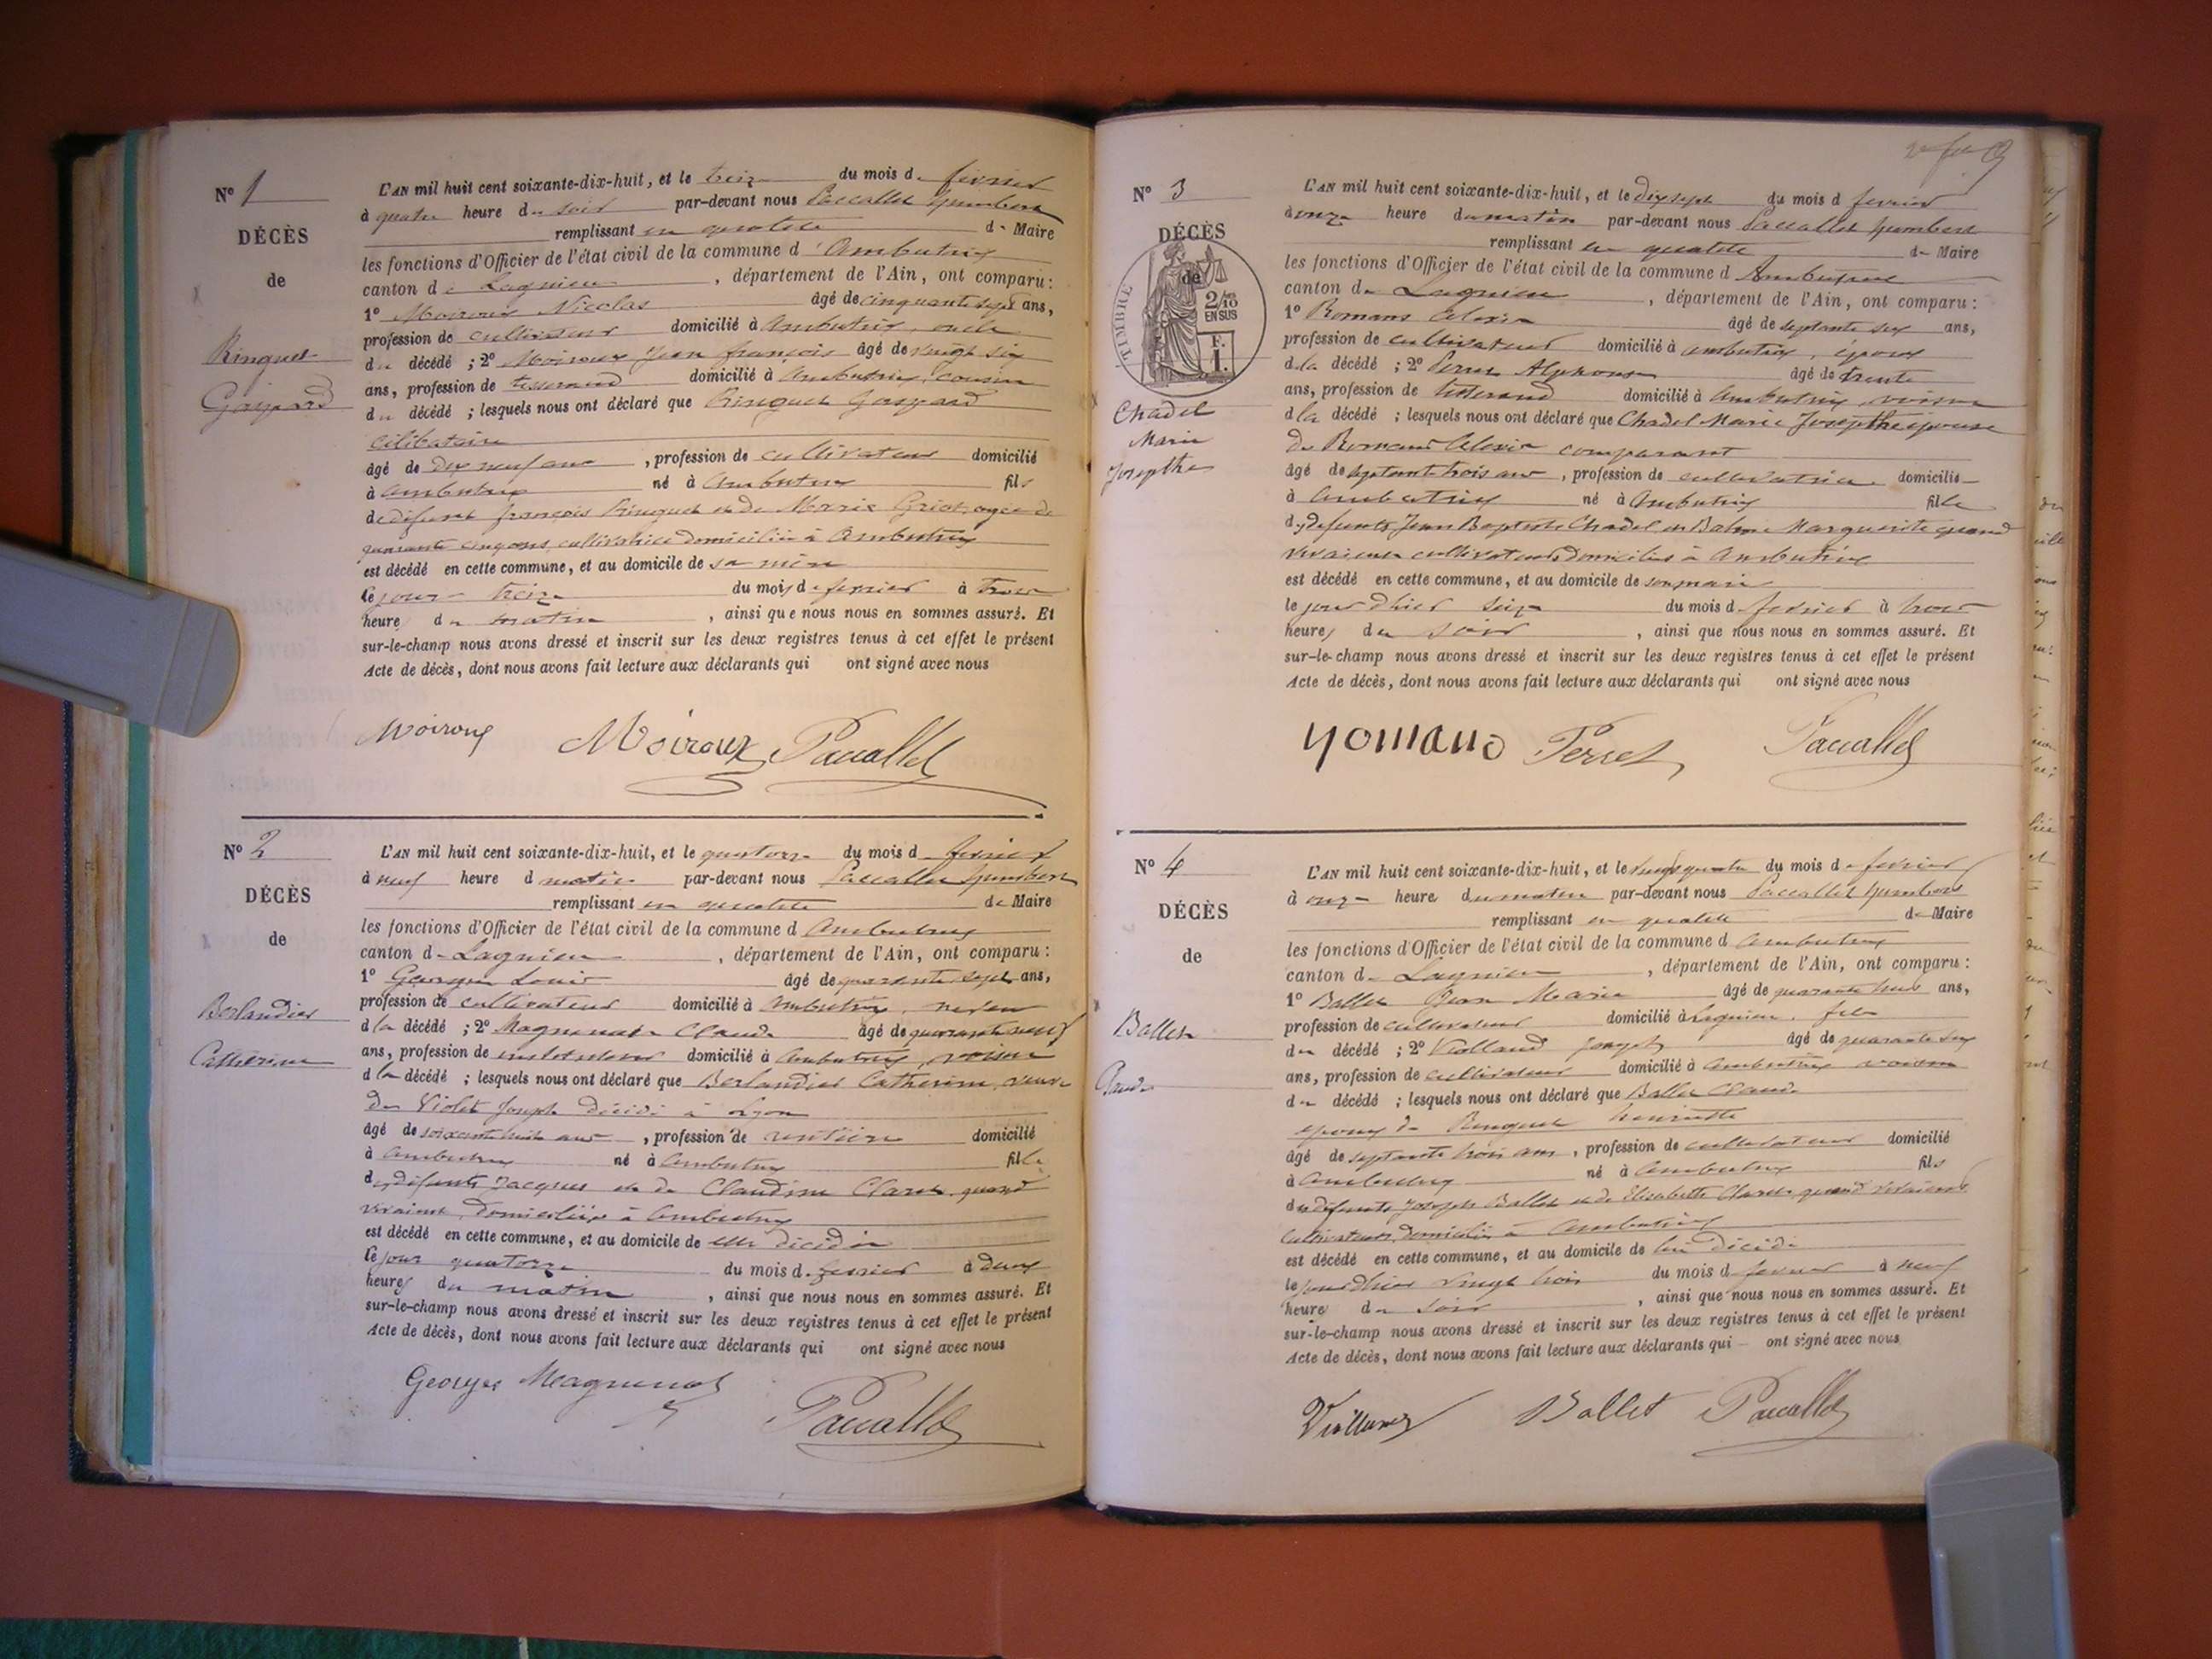 N° 1
DÉCÈS
de
Ringuet
Gaspard
L'AN mil huit cent soixante-dix-huit, et le treize du mois de février
à quatre heure du soir par-devant nous Paccallet humbert
remplissant en qualité de Maire
les fonctions d'Officier de l'état civil de la commune d'Ambutrix
canton de Lagnieu, département de l'Ain, ont comparu :
1° Moiroux Nicolas âgé de cinquante sept ans,
profession de cultivateur domicilié à ambutrix, oncle
du décédé ; 2° Moiroux Jean françois âgé de vingt six
ans, profession de tisserand domicilié à Ambutrix, cousin
du décédé ; lesquels nous ont déclaré que Ringuet Gaspard
célibataire
âgé de dix neuf ans, profession de cultivateur domicilié
à ambutrix né à Ambutrix fils
de défunt françois Ringuet et de Marie agée de
quarante cinq ans, cultivatrice domiciliée à Ambutrix
est décédé en cette commune, et au domicile de sa mère
le jour treize du mois de février à trois
heure du matin, ainsi que nous nous en sommes assuré. Et
sur-le-champ nous avons dressé et inscrit sur les deux registres tenus à cet effet le présent
Acte de décès, dont nous avons fait lecture aux déclarants qui ont signé avec nous
Moiroux Moiroux Paccallet
N° 2
DÉCÈS
de
Berlandier
Catherine
L'AN mil huit cent soixante-dix-huit, et le quatorze du mois d février
à neuf heure d matin par-devant nous Paccallet humbert
remplissant en qualité de Maire
les fonctions d'Officier de l'état civil de la commune d Ambutrix
canton de Lagnieu, département de l'Ain, ont comparu :
1° Georges Louis âgé de quarante sept ans,
profession de cultivateur domicilié à Ambutrix, neveu
d la décédé ; 2° Magnenat Claude âgé de quarante neuf
ans, profession de domicilié à Ambutrix, voisin
d la décédé ; lesquels nous ont déclaré que Berlandier Catherine veuve
de Violet Joseph décédé à Lyon
âgé de soixante huit ans, profession de rentière domicilié
à Ambutrix né à Ambutrix fille
des défunts Jacques et de Claudine Claret quand
vivaient domiciliés à Ambutrix
est décédé en cette commune, et au domicile de elle décédée
le jour quatorze du mois de février à deux
heures du matin, ainsi que nous nous en sommes assuré. Et
sur-le-champ nous avons dressé et inscrit sur les deux registres tenus à cet effet le présent
Acte de décès, dont nous avons fait lecture aux déclarants qui ont signé avec nous
Georges Magnenat
Paccallet
N° 3
DÉCÈS
de
TIMBRE
2/10
EN SUS
F.
1.
Chadel
Marie
Josepthe
L'AN mil huit cent soixante-dix-huit, et le dix sept du mois d fevrier
à onze heure du matin par-devant nous Paccallet humbert
remplissant en qualité de Maire
les fonctions d'Officier de l'état civil de la commune d Ambutrix
canton de Lagnieu, département de l'Ain, ont comparu :
1° Romans Alexis âgé de septante six ans,
profession de cultivateur domicilié à ambutrix, époux
d la décédé ; 2° Perret Alphonse âgé de trente
ans, profession de tisserand domicilié à Ambutrix, voisin
d la décédé ; lesquels nous ont déclaré que Chadel Marie Josepthe épouse
de Romans Alexis comparant
âgé de septante trois ans, profession de cultivatrice domicilié
à Ambutrix né à Ambutrix fille
des defunts Jean Baptiste Chadel et Marguerite quand
vivaient cultivateurs domiciliés à Ambutrix
est décédé en cette commune, et au domicile de son mari
le jour d'hier seize du mois d fevrier à trois
heures du soir, ainsi que nous nous en sommes assuré. Et
sur-le-champ nous avons dressé et inscrit sur les deux registres tenus à cet effet le présent
Acte de décès, dont nous avons fait lecture aux déclarants qui ont signé avec nous
Romans Perret Paccallet
N° 4
DÉCÈS
de
Ballet
Claude
L'AN mil huit cent soixante-dix-huit, et le vingt quatre du mois de fevrier
à onze heure du matin par-devant nous Paccallet humbert
remplissant en qualité de Maire
les fonctions d'Officier de l'état civil de la commune d Ambutrix
canton de Lagnieu, département de l'Ain, ont comparu :
1° Ballet Jean Marie âgé de quarante huit ans,
profession de cultivateur domicilié à Lagnieu, fils
du décédé ; 2° Violland Joseph âgé de quarante six
ans, profession de cultivateur domicilié à Ambutrix voisin
du décédé ; lesquels nous ont déclaré que Ballet Claude
époux de Ringuet henriette
âgé de septante trois ans, profession de cultivateur domicilié
à Ambutrix né à Ambutrix fils
des défunts Joseph Ballet et de Elisabeth Claret quand vivaient
cultivateurs domiciliés à Ambutrix
est décédé en cette commune, et au domicile de lui décédé
le jour d'hier vingt trois du mois d fevrier à neuf
heure du soir, ainsi que nous nous en sommes assuré. Et
sur-le-champ nous avons dressé et inscrit sur les deux registres tenus à cet effet le présent
Acte de décès, dont nous avons fait lecture aux déclarants qui ont signé avec nous
Violland Ballet Paccallet